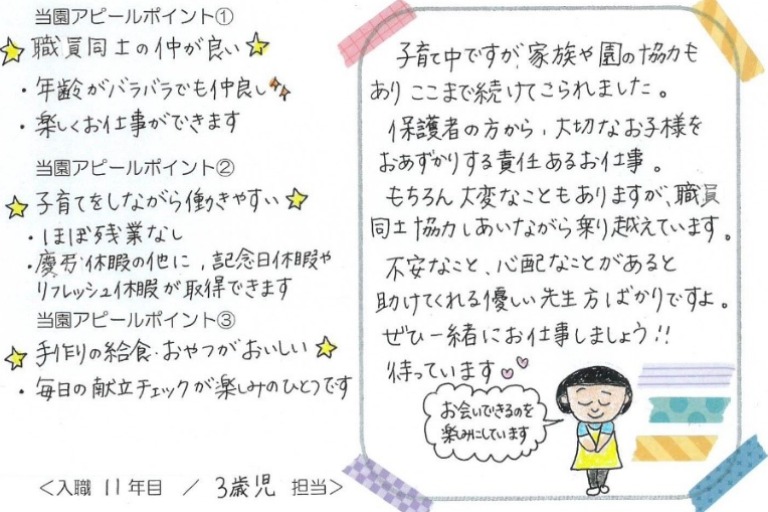 当園アピールポイント①
職員同士の仲が良い
・年齢がバラバラでも仲良し
・楽しくお仕事ができます
当園アピールポイント②
子育てをしながら働きやすい
・ほぼ残業なし
・慶弔休暇の他に、記念日休暇や
リフレッシュ休暇が取得できます
当園アピールポイント③
手作りの給食・おやつがおいしい
・毎日の献立チェックが楽しみのひとつです
＜入職 11年目 / 3歳児 担当＞
子育て中ですが、家族や園の協力も
あり ここまで続けてこられました。
保護者の方から、大切なお子様を
おあずかりする責任あるお仕事。
もちろん大変なこともありますが、職員
同士協力しあいながら乗り越えています。
不安なこと、心配なことがあると
助けてくれる優しい先生方ばかりですよ。
ぜひ一緒にお仕事しましょう!!
待っています
お会いできるのを
楽しみにしています